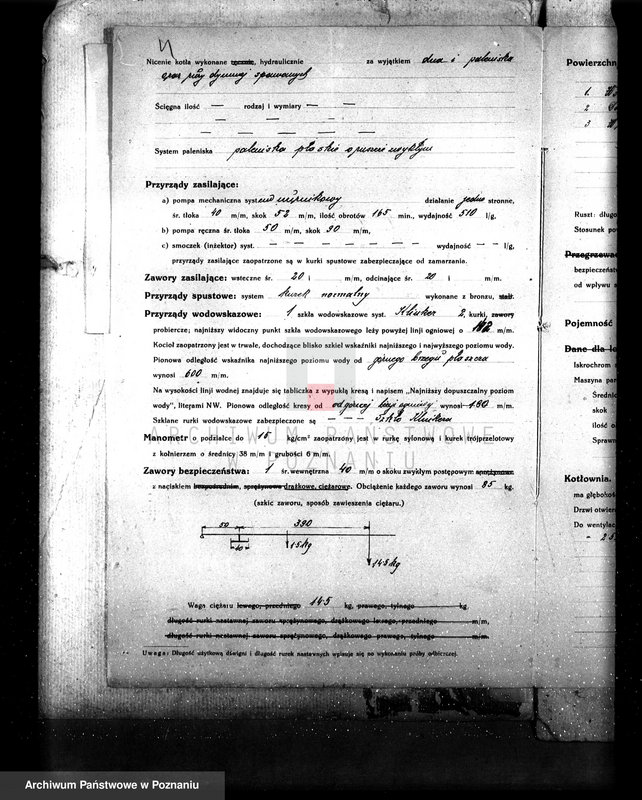 Nicenie kotła wykonane ręcznie, hydraulicznie za wyjątkiem dna i paleniska
oraz rury dymowej spawanych
Ścięgna ilość — rodzaj i wymiary — —
— — — —
— — — — —
System paleniska paleniska płaskie o ruszcie zwykłym
Przyrządy zasilające:
a) pompa mechaniczna systemu nurnikowy działanie jedno stronne,
śr. tłoka 40 m/m, skok 52 m/m, ilość obrotów 165 min., wydajność 510 l/g,
b) pompa ręczna śr. tłoka 50 m/m, skok 90 m/m,
c) smoczek (inżektor) syst. — — — — wydajność — — l/g,
przyrządy zasilające zaopatrzone są w kurki spustowe zabezpieczające od zamarzania.
Zawory zasilające: wsteczne śr. 20 i m/m, odcinające śr. 20 i m/m.
Przyrządy spustowe: system kurek normalny wykonane z bronzu, stali.
Przyrządy wodowskazowe: 1 szkła wodowskazowe syst. Klinker 2, kurki, zawory
probiercze; najniższy widoczny punkt szkła wodowskazowego leży powyżej linji ogniowej o m/m.
Kocioł zaopatrzony jest w trwałe, dochodzące blisko szkieł wskaźniki najniższego i najwyższego poziomu wody.
Pionowa odległość wskaźnika najniższego poziomu wody od górnego brzegu płaszcza
wynosi 600 m/m.
Na wysokości linji wodnej znajduje się tabliczka z wypukłą kreską i napisem „Najniższy dopuszczalny poziom
wody", literami NW. Pionowa odległość kresy od wynosi 180 m/m.
Szklane rurki wodowskazowe zabezpieczone są — — — Szkło Klinkera
Manometr o podziałce do 15 kg/cm² zaopatrzony jest w rurkę sylonową i kurek trójprzelotowy
z kołnierzem o średnicy 38 m/m i grubości 6 m/m.
Zawory bezpieczeństwa: 1 śr. wewnętrzna 40 m/m o skoku zwykłym postępowym sprężynowe
z naciskiem bezpośrednim, sprężynowe drążkowe, ciężarowe. Obciążenie każdego zaworu wynosi 85 kg.
(szkic zaworu, sposób zawieszenia ciężaru.)
50 390
40
1.5 kg
14.5 kg
Waga ciężaru lewego, przedniego 14.5 kg, prawego, tylnego kg.
długość rurki nastawnej zaworu sprężynowego, drążkowego lewego, przedniego m/m,
długość rurki nastawnej zaworu sprężynowego, drążkowego prawego, tylnego m/m.
Uwaga: Długość użytkową dźwigni i długość rurek nastawnych wpisuje się po wykonaniu próby odbiorczej.
Powierzchn
1.
2
3
Ruszt: długo
Stosunek po
Przegrzewac
bezpieczeńst
od wpływu s
Pojemność
Dane dla lo
Iskrochron s
Maszyna par
Średnic
skok
ilość o
Sprawn
Kotłownia.
ma głębokość
Drzwi otwier
Do wentylac
ARCHIWUM PAŃSTWOWE
W POZNANIU
Archiwum Państwowe w Poznaniu